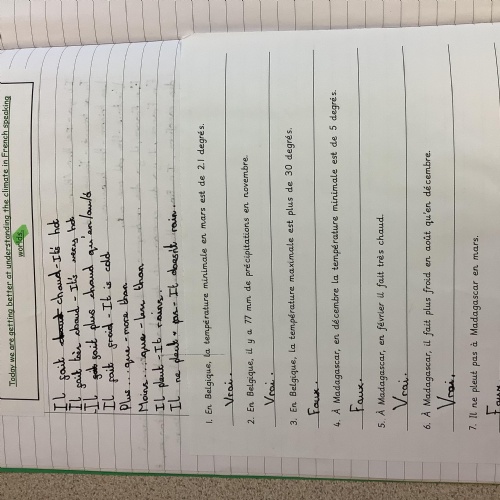 Today we are getting better at understanding the climate in French speaking
worlds.
Il fait chaud - It's hot
Il fait très chaud - It's very hot
Il fait plus chaud qu'en
Il fait froid - It is cold
Plus ... que - more than
Moins ... que - less than
Il pleut - It rains.
Il ne pleut pas - It doesnt rain.
1. En Belgique, la température minimale en mars est de 2.1 degrés.
Vrai.
2. En Belgique, il y a 77 mm de précipitations en novembre.
Vrai.
3. En Belgique, la température maximale est plus de 30 degrés.
Faux.
4. À Madagascar, en décembre la température minimale est de 5 degrés.
Faux.
5. À Madagascar, en février il fait très chaud.
Vrai.
6. À Madagascar, il fait plus froid en août qu'en décembre.
Vrai.
7. Il ne pleut pas à Madagascar en mars.
Faux